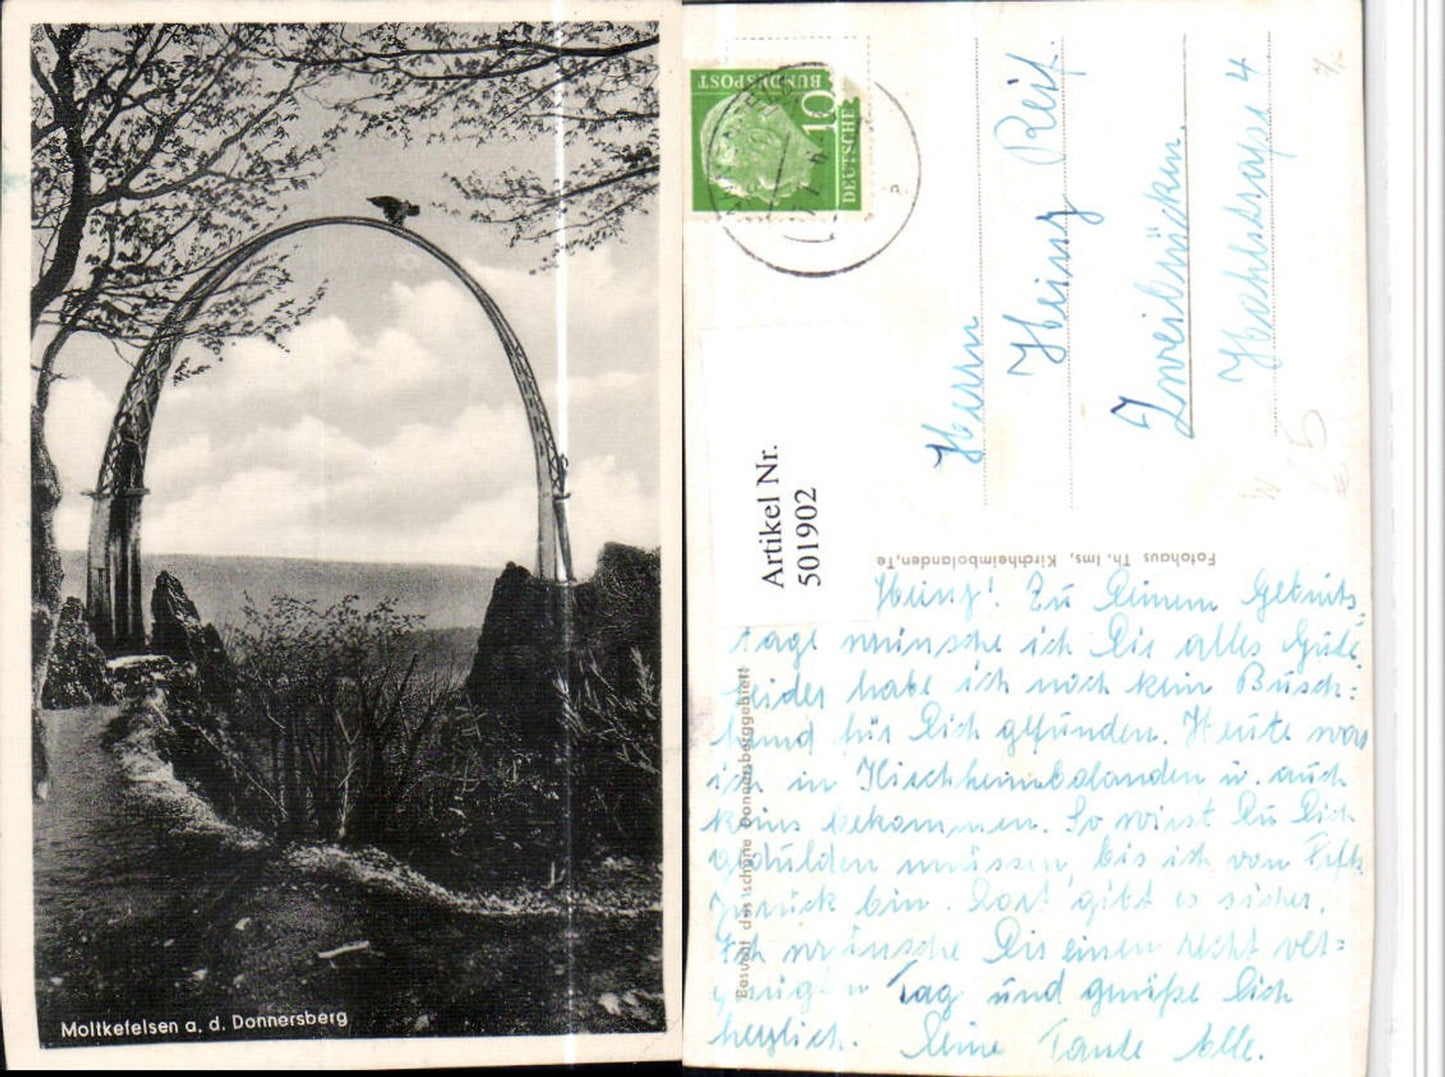 Moltkefelsen a. d. Donnersberg
DEUTSCHE BUNDESPOST
10
Artikel Nr.
501902
Herrn
Heinz Reif.
Zweibrücken.
4
Fotohaus Th. Ims, Kirchheimbolanden,Te
Besucht das schöne Donnersberggebiet!
Heinz! Zu Deinem Geburts-
tage wünsche ich Dir alles Gute.
Leider habe ich noch kein Busch=
hemd für Dich gefunden. Heute war
ich in Kirchheimbolanden u. auch
keins bekommen. So wirst Du Dich
gedulden müssen, bis ich von
zurück bin. Dort gibt es sicher.
Ich wünsche Dir einen recht ver=
gnügten Tag und grüße Dich
herzlich. Deine Tante